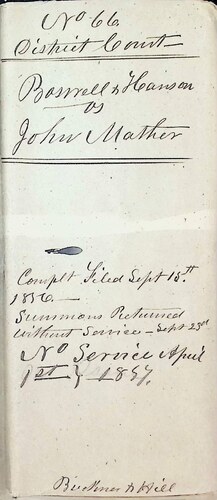 No 66
District Court
Boswell & Hanson
vs
John Mather
Complt Filed Sept 15th
1856
Summons Returned
without Service - Sept 23rd
No Service April
1st 1857.
Buckner & Hill